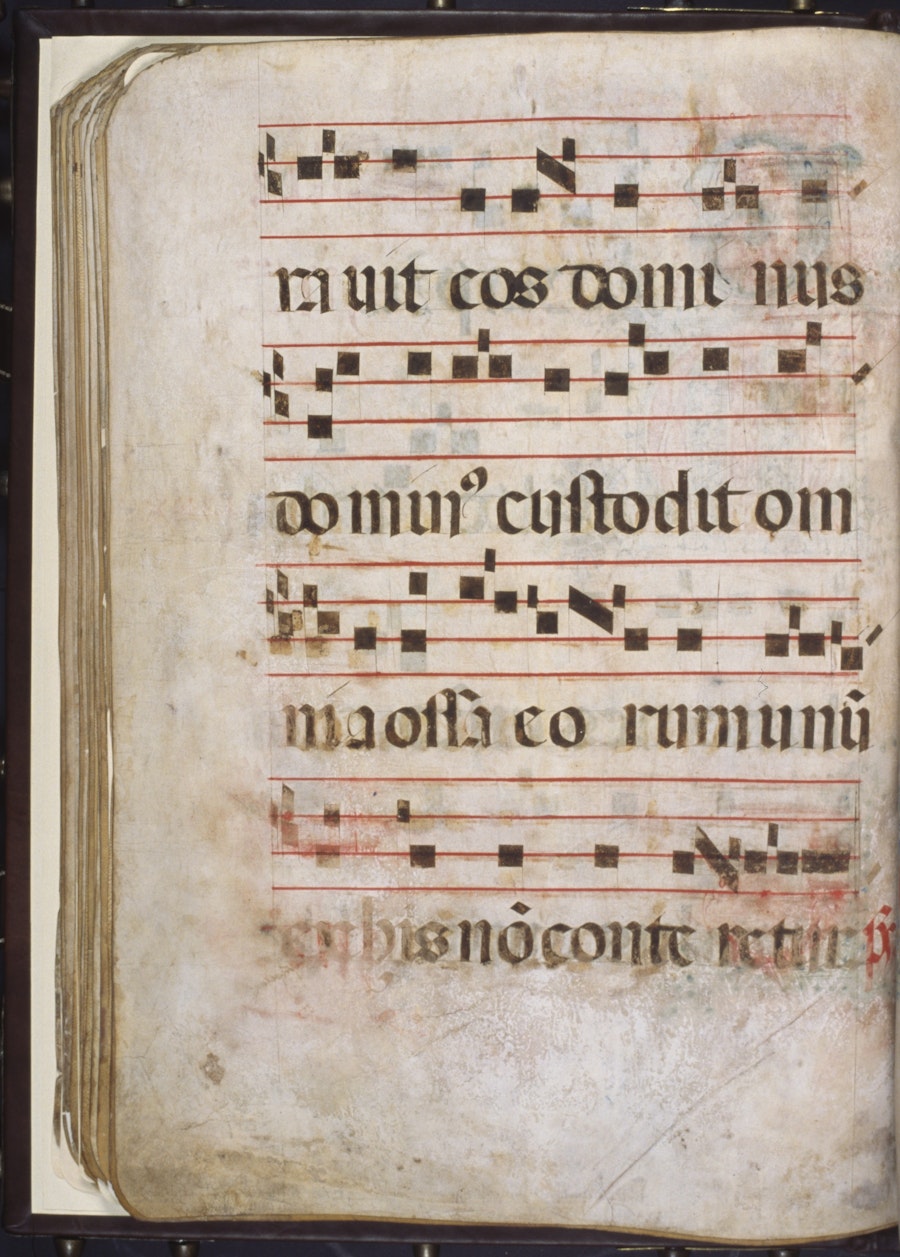 ra uit eos domi nus
domin⁹ custodit om
nia ossa eo rum unū
ex his nō conte retur ps̄